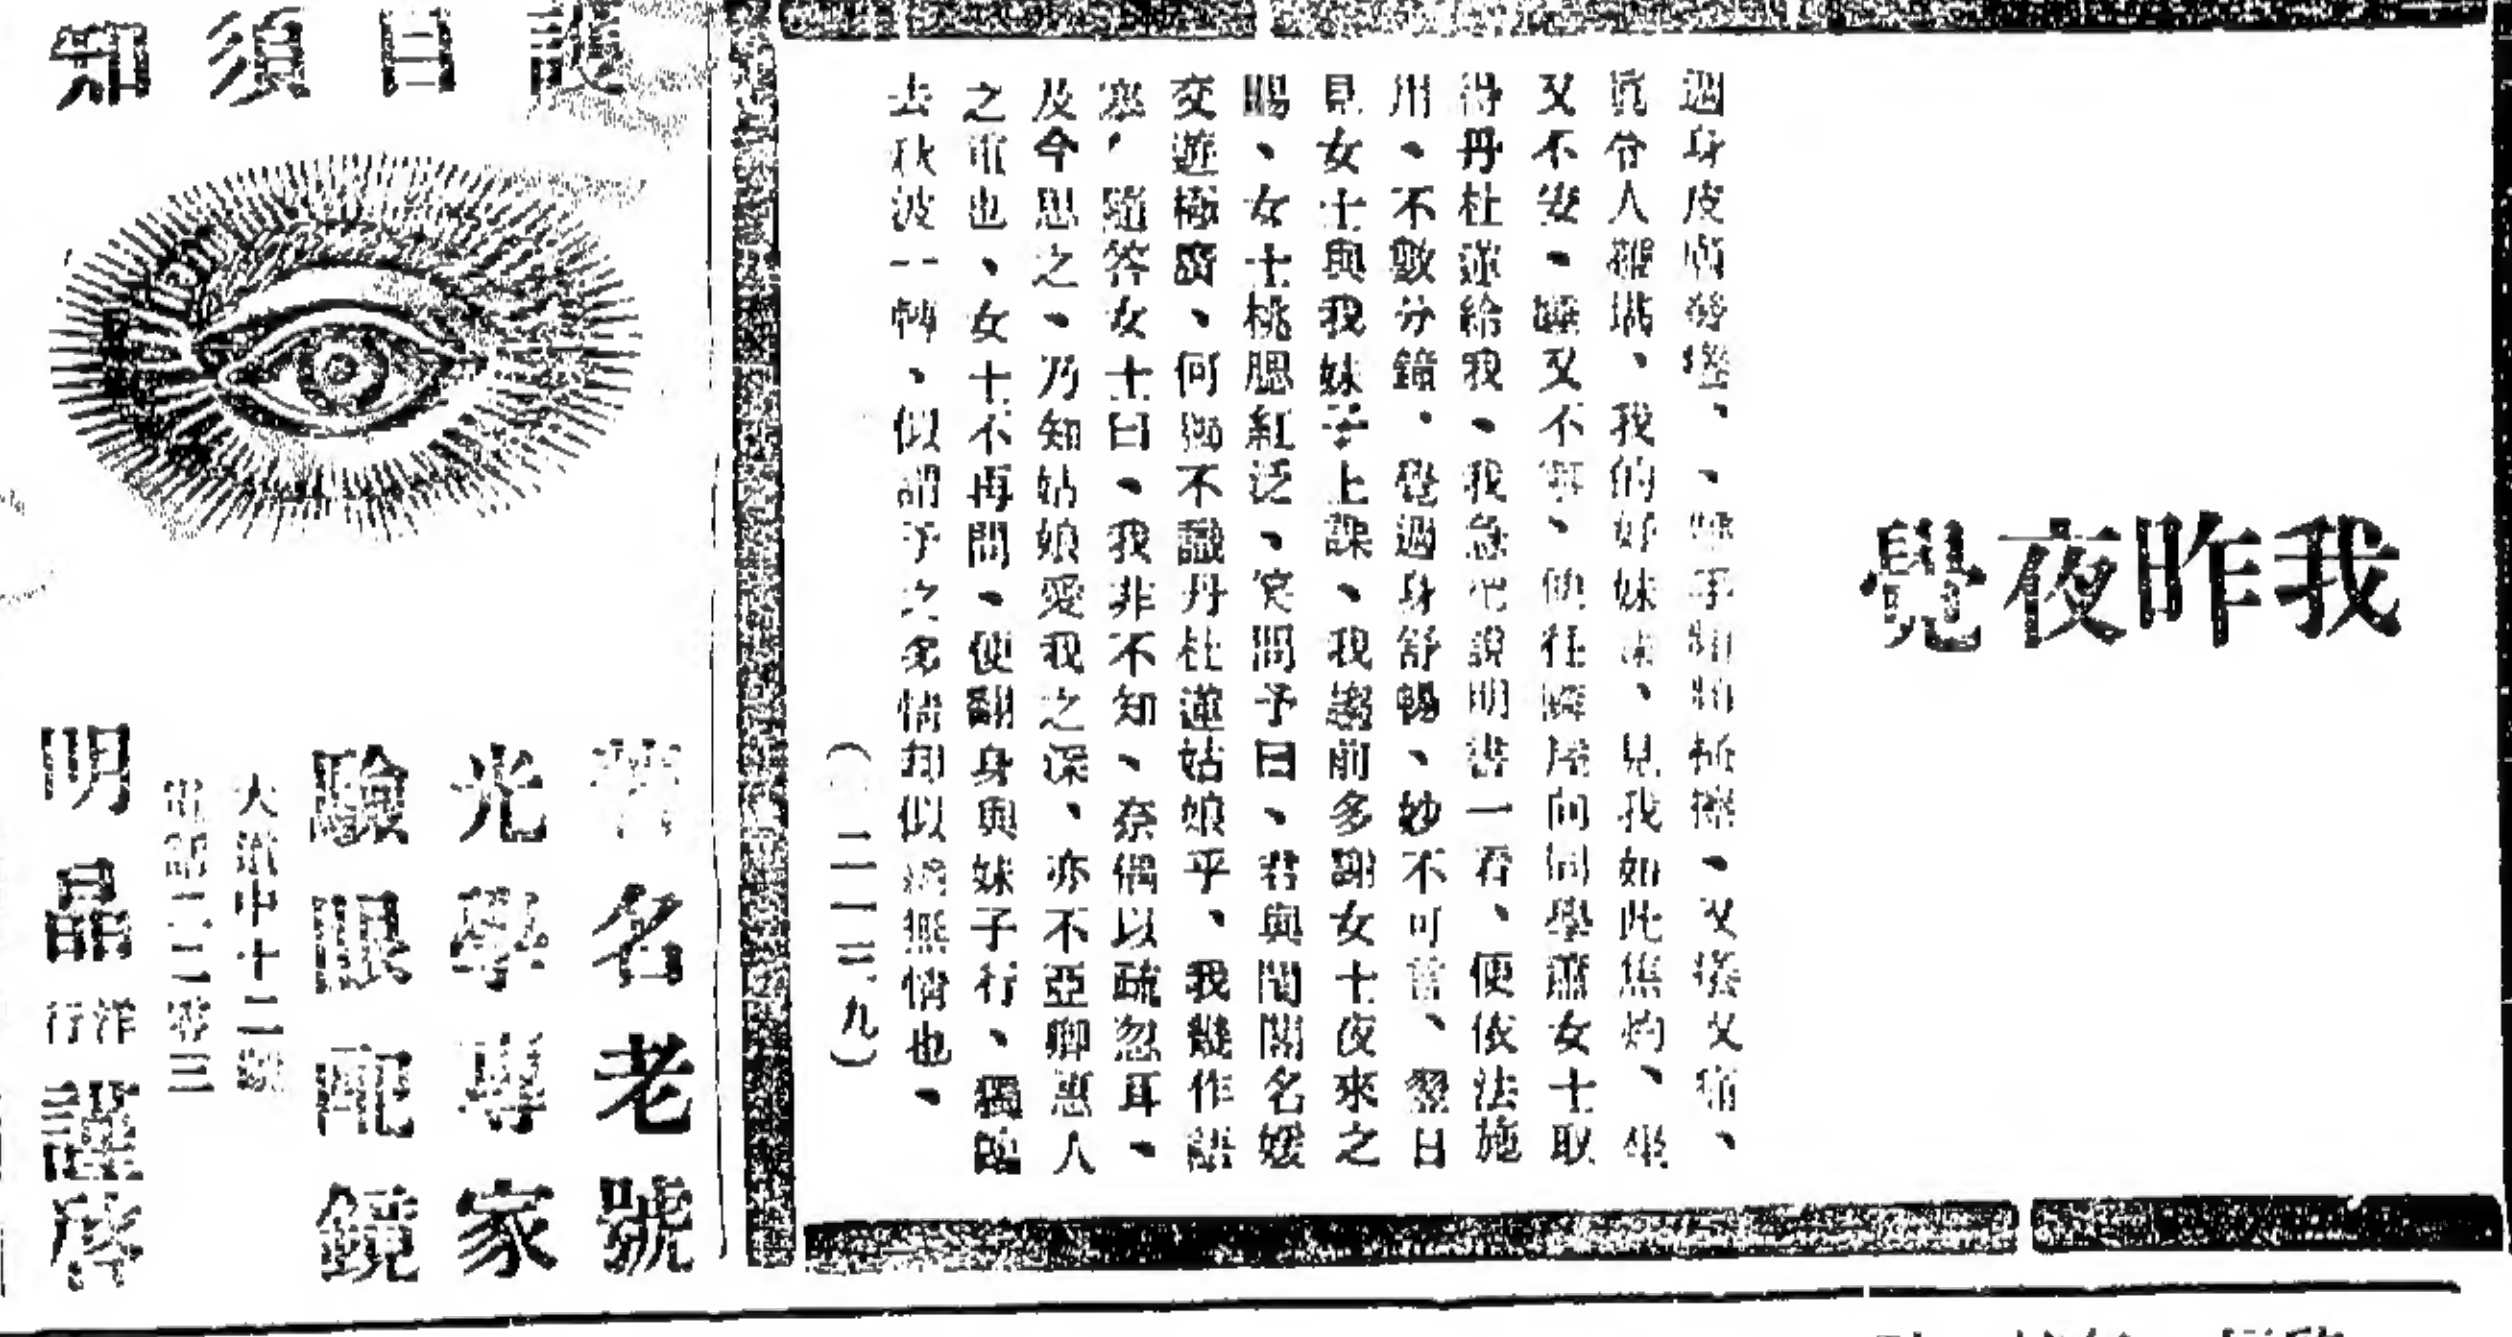 我昨夜覺
週身皮膚發癢、、雖手如將極擦、又癢又痛、
眞令人難堪、我的好妹妹、見我如此焦灼、坐
又不安、睡又不寧、便往隣居向同學蕭女士取
得丹杜蓮給我、我急把說明書一看、便依法施
用、不數分鐘、覺週身舒暢、妙不可言、翌日
見女士與我妹子上課、我趨前多謝女士夜來之
賜、女士桃腮紅泛、笑問予曰、君與閨閣名媛
交遊極廣、何獨不識丹杜蓮姑娘乎、我幾作語
塞、隨答女士曰、我非不知、奈偶以疏忽耳、
及今思之、乃知姑娘愛我之深、亦不亞卿惠人
之重也、女士不再問、便翻身與妹子行、獨臨
去秋波一轉、似謂予之多情却似總無情也、
(二一三九)
護目須知
著名老號
光學專家
驗眼配鏡
大道中十二號
電話二三零三
明晶洋行謹啓